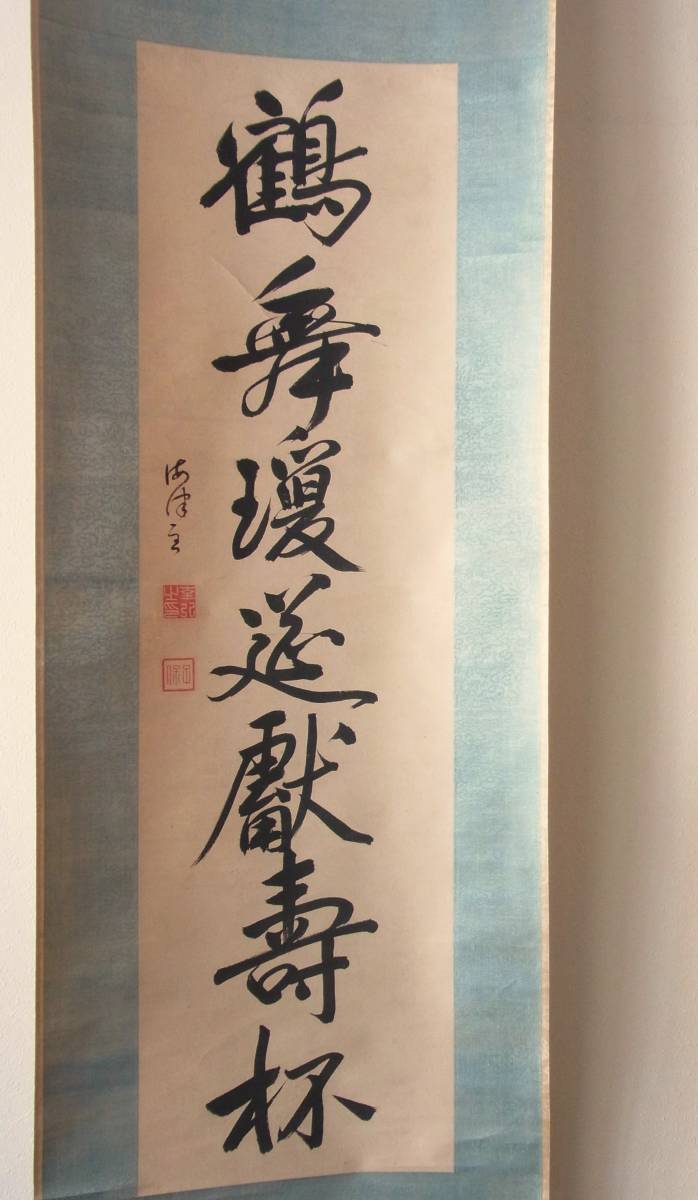 鶴舞瓊筵獻壽杯